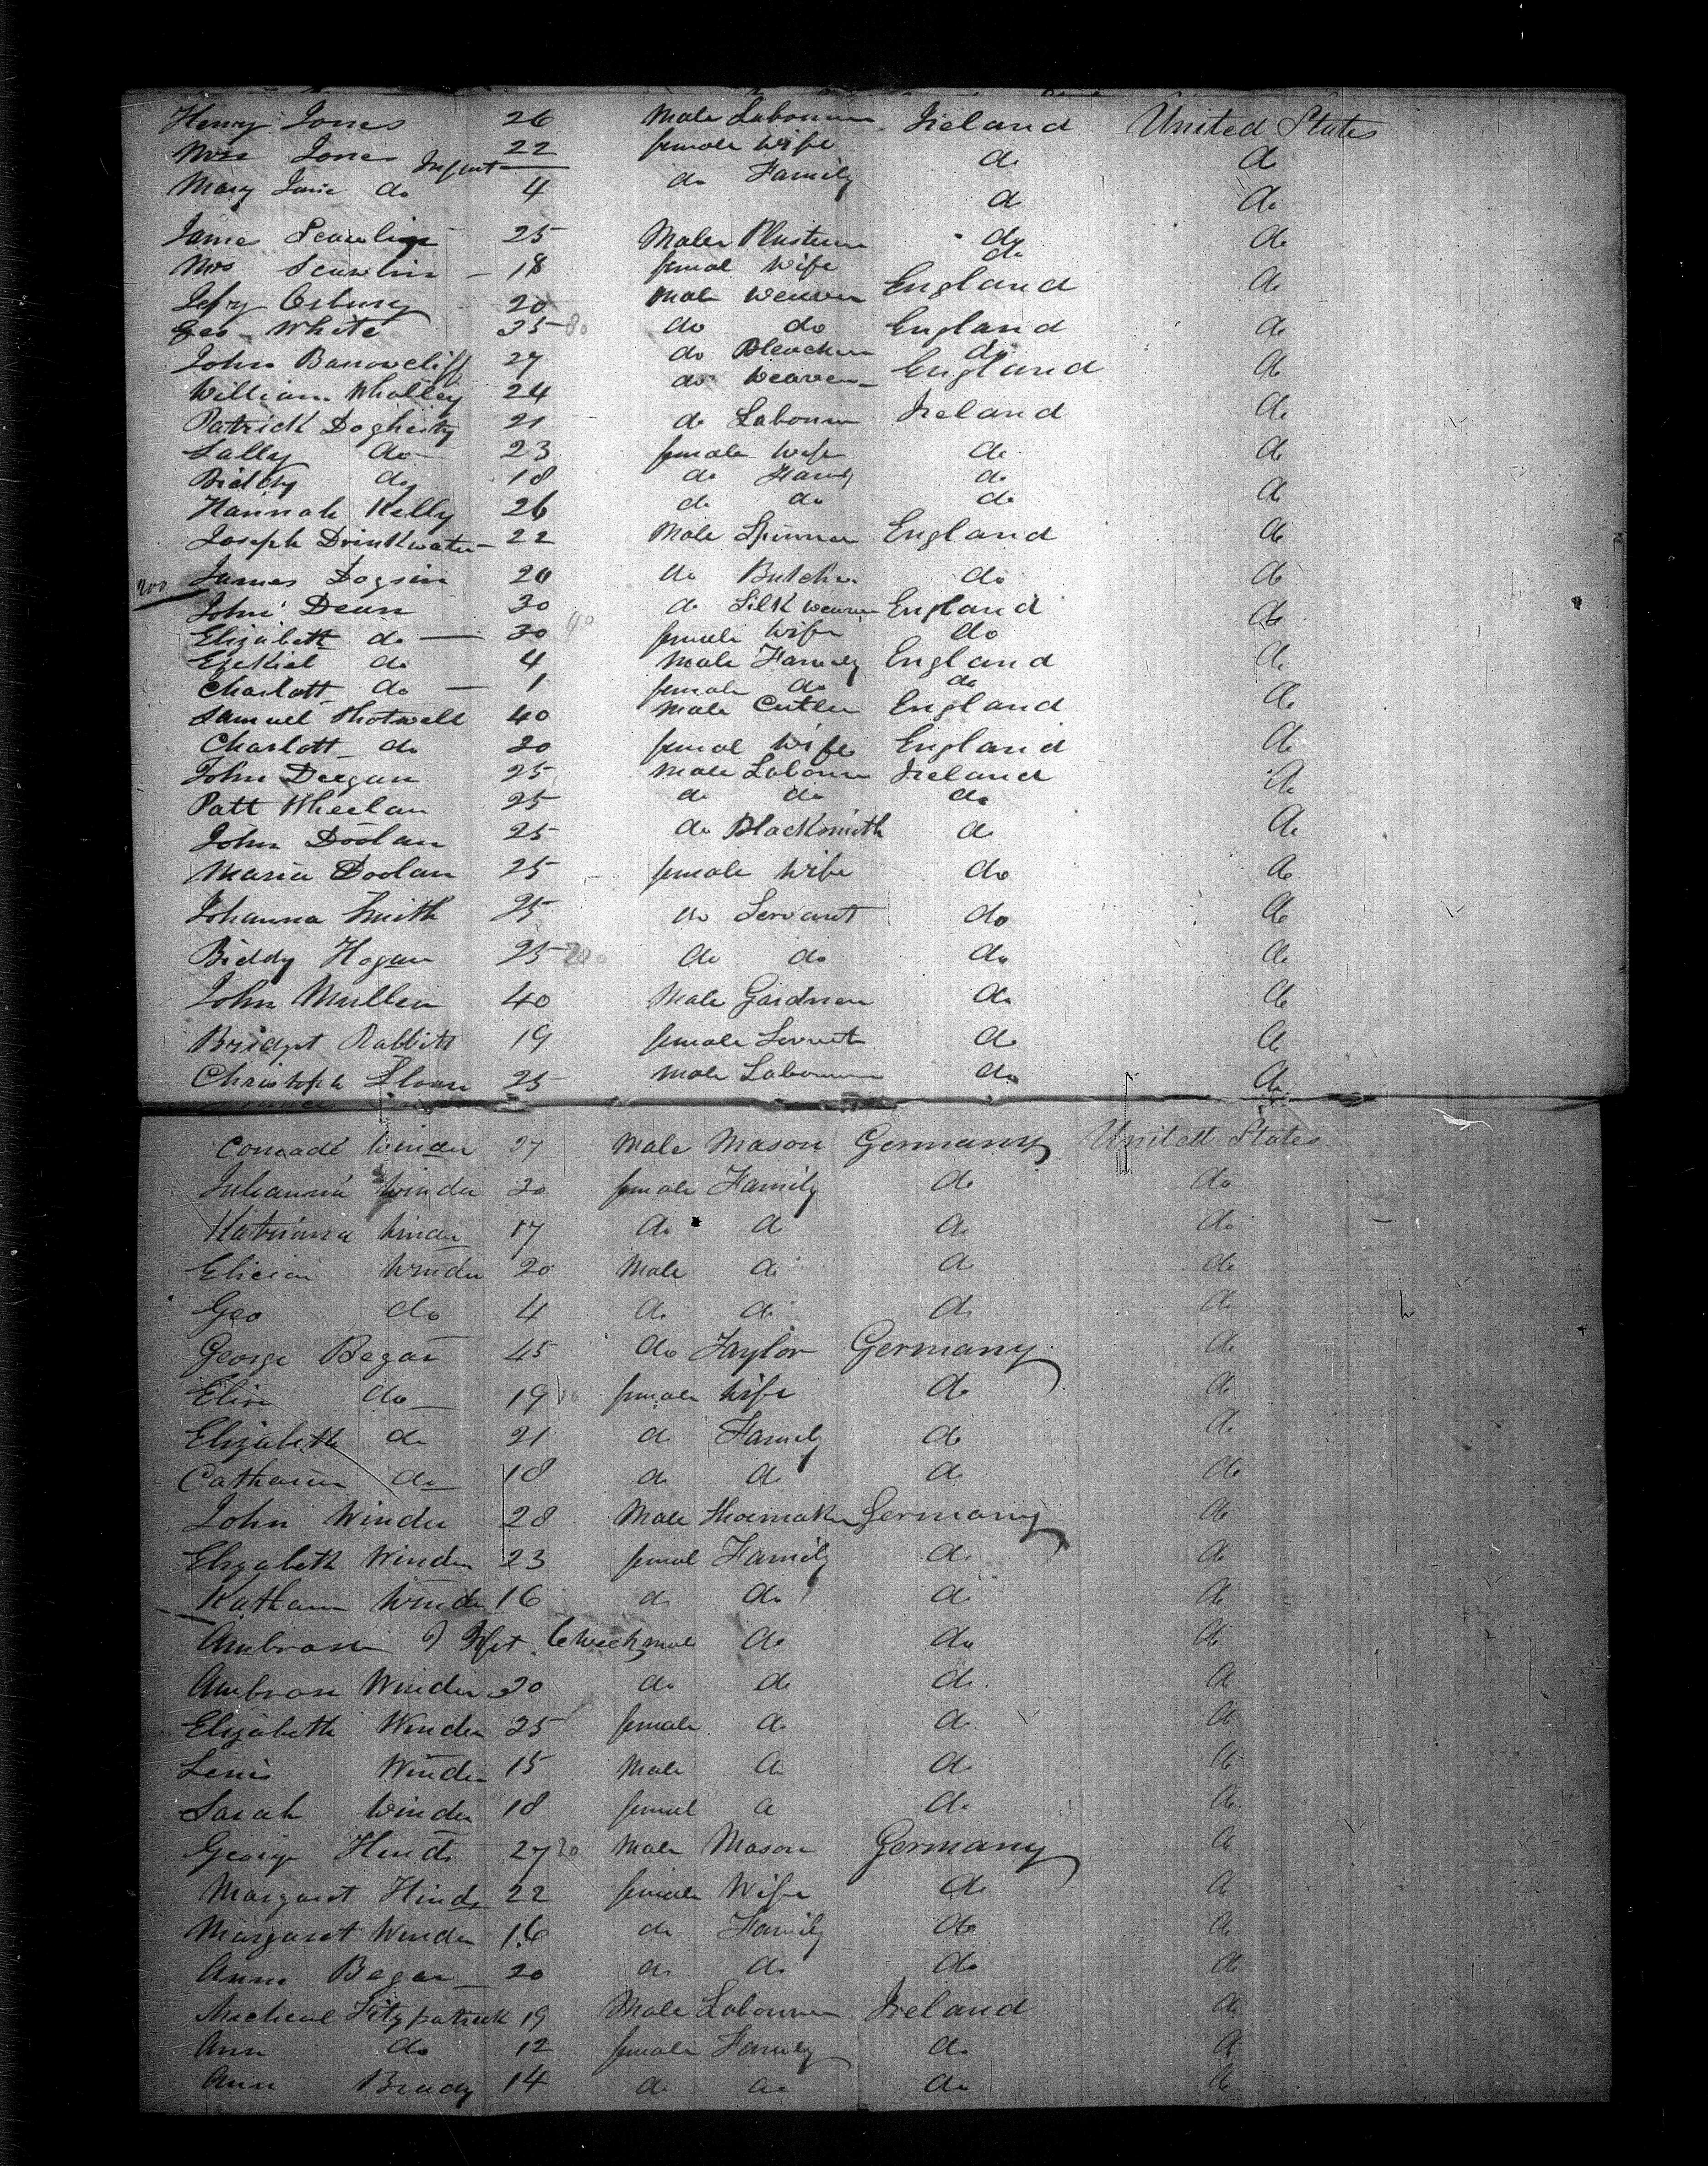 Henry Jones 26 Male Labourer Ireland United States
Mrs Jones 22 female wife do do
Infant
Mary Jane do 4 do Family do do
James Scawlin 25 Male Plasterer do do
Mrs Scawlin 18 femal wife do
Jefry Osbury 20 Male Weaver England do
Geo White 35 80 do do England do
John Barrowcliff 27 do Bleacher do do
William Whalley 24 do Weaver England
Patrick Dogherty 21 do Labourer Ireland do
Sally do 23 female wife do do
Biddy do 18 do Family do
Hannah Kelly 26 do do do do
Joseph Drinkwater 22 Male Spinner England do
200 James Dogsin 20 do Butcher do do
John Dean 30 do Silk weaver England do
Elizabeth do 30 90 female wife do
Ezekiel do 4 Male Family England do
Charlott do 1 female do do
Samuel Shotwell 40 Male Cutler England do
Charlott do 20 femal wife England do
John Deegan 25 Male Labourer Ireland do
Patt Wheelan 25 do do do
John Doolan 25 do Blacksmith do do
Maria Doolan 25 female wife do do
Johanna Smith 25 do Servant do do
Biddy Hogan 25 do do do do
John Mullen 40 Male Gardner do do
Bridget Rabbitt 19 female Servent do do
Christoph Sloan 25 Male Labourer do do
Conradt Winder 27 Male Mason Germany United States
Julianna Winder 20 female Family do do
Katrinna Winder 17 do do do do
Elician Winder 20 Male do do do
Geo do 4 do do do do
George Begar 45 do Taylor Germany do
Elisa do 19 female wife do do
Elizabeth do 21 do Family do do
Catharin do 18 do do do do
John Winder 28 Male Shoemaker Germany do
Elizabeth Winder 23 femal Family do do
Katharn Winder 16 do do do do
Ambrose Inft 6 week male do do do
Ambrose Winder 30 do do do do
Elizabeth Winder 25 female do do do
Lewis Winder 15 Male do do do
Sarah Winder 18 femal do do do
George Hinds 27 Male Mason Germany do
Margaret Hinds 22 female Wife do do
Margaret Winder 16 do Family do do
Anna Begar 20 do do do do
Micheal Fitzpatrick 19 Male Labourer Ireland do
Ann do 12 female Family do do
Ann Brady 14 do do do do